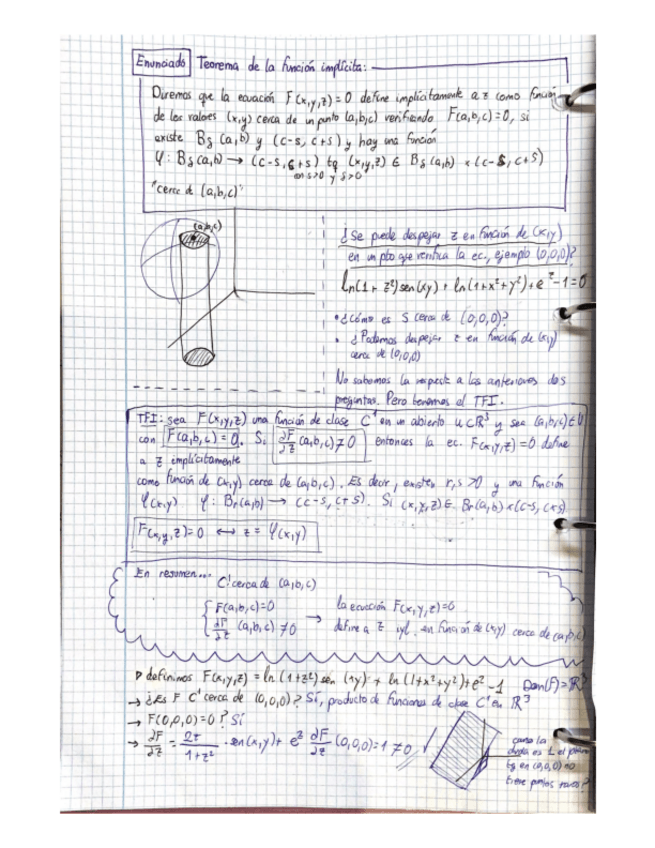 Enunciado Teorema de la función implícita:
Diremos que la ecuación F(x,y,z)=0 define implícitamente a z como función
de los valores (x,y) cerca de un punto (a,b,c) verificando F(a,b,c)=0, si
existe Bδ (a,b) y (c-s, c+s) y hay una función
φ: Bδ(a,b) → (c-s, c+s) tq (x,y,z) ∈ Bδ(a,b) × (c-s, c+s)
con s>0 y δ>0
"cerca de (a,b,c)"
(a,b,c)
¿Se puede despejar z en función de (x,y)
en un pto que verifica la ec., ejemplo (0,0,0)?
ln(1+z²)sen(xy) + ln(1+x²+y²)+e^z-1=0
• ¿Cómo es S cerca de (0,0,0)?
• ¿Podemos despejar z en función de (x,y)
cerca de (0,0,0)
No sabemos la respuesta a las anteriores dos
preguntas. Pero tenemos el TFI.
TFI: sea F(x,y,z) una función de clase C¹ en un abierto U⊂ℝ³ y sea (a,b,c)∈U
con F(a,b,c)=0. Si ∂F/∂z (a,b,c)≠0 entonces la ec. F(x,y,z)=0 define
a z implícitamente
como función de (x,y) cerca de (a,b,c). Es decir, existen r,s>0 y una función
φ(x,y) φ: Br(a,b) → (c-s, c+s). Si (x,y,z)∈ Br(a,b)×(c-s, c+s)
F(x,y,z)=0 ↔ z = φ(x,y)
En resumen...
C¹ cerca de (a,b,c)
F(a,b,c)=0 → la ecuación F(x,y,z)=0
∂F/∂z (a,b,c) ≠0 define a z en función de (x,y) cerca de (a,b,c)
definimos F(x,y,z)=ln(1+z²)sen(xy)+ ln(1+x²+y²)+e^z-1 Dom(F)=ℝ³
→ ¿Es F C¹ cerca de (0,0,0)? Sí, producto de funciones de clase C¹ en ℝ³
→ F(0,0,0)=0? Sí
→ ∂F/∂z = 2z/1+z² · sen(x,y)+ e^z ∂F/∂z (0,0,0)=1 ≠0 ✓
como la
es 1 el plano
tg en (0,0,0) no
tiene puntos